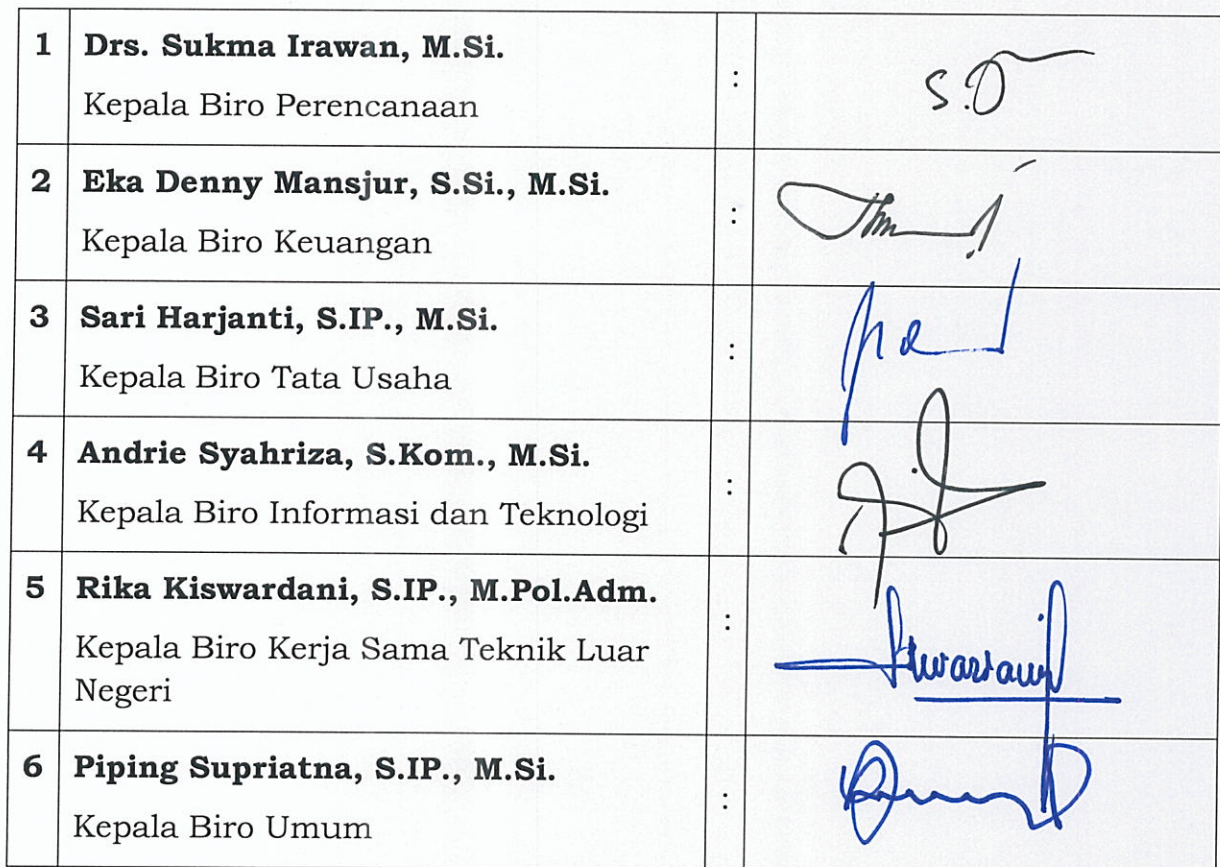 1 Drs. Sukma Irawan, M.Si. :
Kepala Biro Perencanaan
2 Eka Denny Mansjur, S.Si., M.Si. :
Kepala Biro Keuangan
3 Sari Harjanti, S.IP., M.Si. :
Kepala Biro Tata Usaha
4 Andrie Syahriza, S.Kom., M.Si. :
Kepala Biro Informasi dan Teknologi
5 Rika Kiswardani, S.IP., M.Pol.Adm. :
Kepala Biro Kerja Sama Teknik Luar
Negeri
6 Piping Supriatna, S.IP., M.Si. :
Kepala Biro Umum